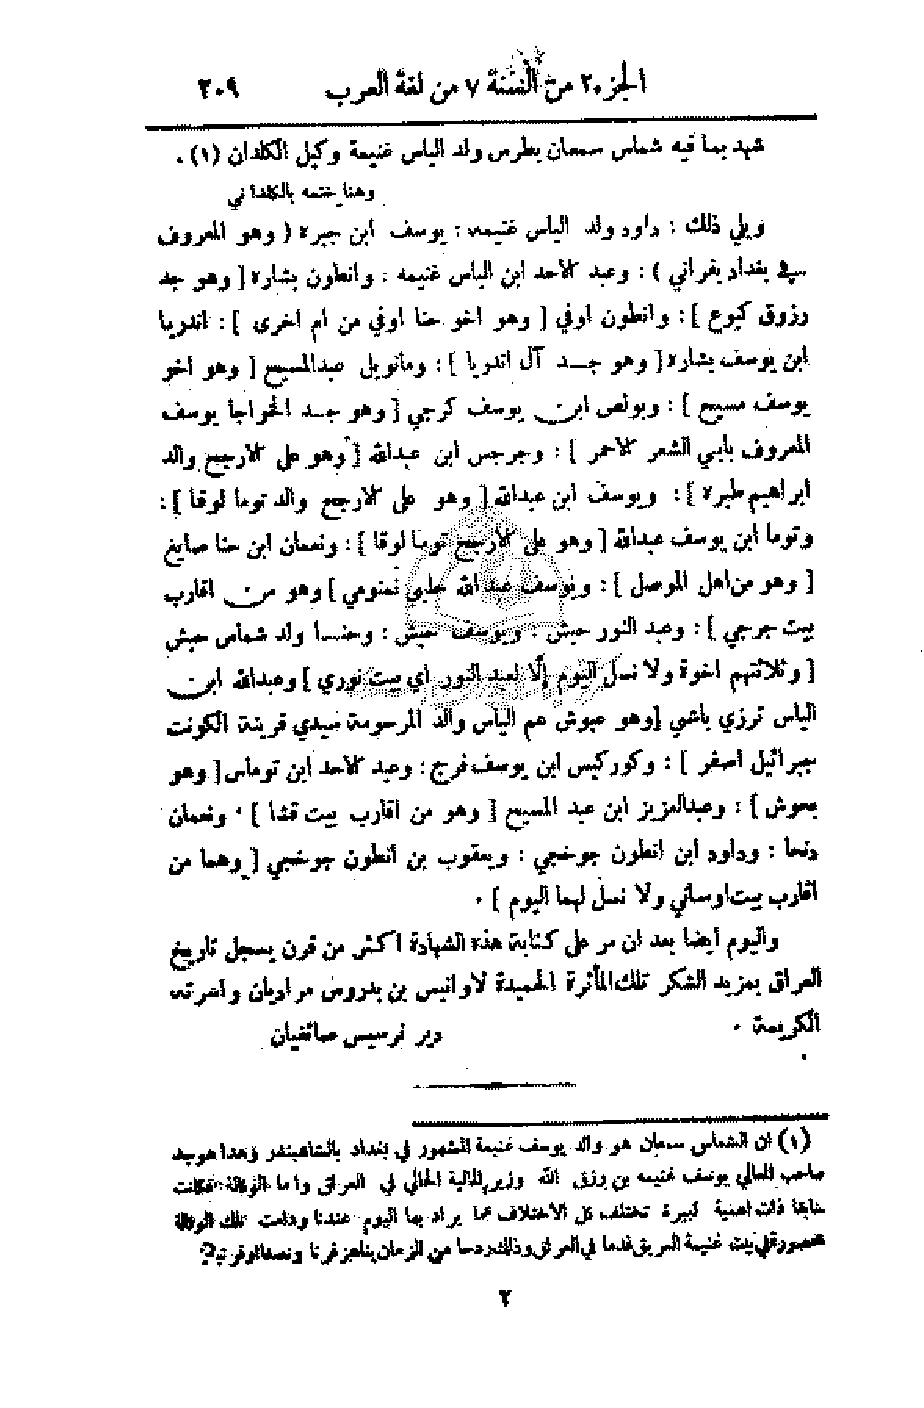 الجزء ٢ من السنة ٧ من لغة العرب ٢٠٩
شهد بما فيه شماس سمعان بطرس ولد الياس غنيمة وكيل الكلدان (١) .
وهنا ختمه بالكلداني
ويلي ذلك : داود ولد الياس غنيمه : يوسف ابن جبره ( وهو المعروف
في بغداد بغراني ) : وعبد الاحد ابن الياس غنيمه : وانطون بشاره [ وهو جد
رزوق كبوع ] : وانطون اوفي [ وهو اخو حنا اوفي من ام اخرى ] : اندريا
ابن يوسف بشاره [ وهو جد آل اندريا ] : ومانويل عبدالمسيح [ وهو اخو
يوسف مسيح ] : وبولص ابن يوسف كرجي [ وهو جد الخواجا يوسف
المعروف بابي الشعر الاحمر ] : وجرجس ابن عبدالله [ وهو على الارجح والد
ابراهيم طبره ] : ويوسف ابن عبدالله [ وهو على الارجح والد توما لوقا ] :
وتوما ابن يوسف عبدالله [ وهو على الارجح توما لوقا ] : ونعمان ابن حنا صايغ
[ وهو من اهل الموصل ] : ويوسف عبدالله حلبي نمنومي [ وهو من اقارب
بيت جرجي ] : وعبد النور حبش : ويوسف حبش : وحنا ولد شماس حبش
[ وثلاثتهم اخوة ولا نسل اليوم إلا لعبد النور اي بيت نوري ] وعبدالله ابن
الياس ترزي باشي [ وهو عبوش عم الياس والد المرحومة سيدي قرينة الكونت
جبرائيل اصفر ] : وكوركيس ابن يوسف فرج : وعبد الاحد ابن توماس [ وهو
بعوش ] : وعبدالعزيز ابن عبد المسيح [ وهو من اقارب بيت قشا ] . ونعمان
دنحا : وداود ابن انطون جوخجي : ويعقوب بن أنطون جوخجي [ وهما من
اقارب بيت اوساني ولا نسل لهما اليوم ] .
واليوم ايضا بعد ان مر على كتابة هذه الشهادة اكثر من قرن يسجل تاريخ
العراق بمزيد الشكر تلك المأثرة الحميدة لاوانيس بن بدروس مراديان واسرته
الكريمة . دير نرسيس صائغيان
(١) ان الشماس سمعان هو والد يوسف غنيمة المشهور في بغداد بالشاهبندر وهذا هو جد
صاحب المعالي يوسف غنيمه بن رزق الله وزير المالية الحالي في العراق واما الوكالة فكانت
سابقا ذات اهمية كبيرة تختلف كل الاختلاف عما يراد بها اليوم عندنا ودامت تلك الوكالة
محصورة في بيت غنيمة العريق قدما في العراق وذلك ردحا من الزمان يناهز قرنا ونصفا
٢